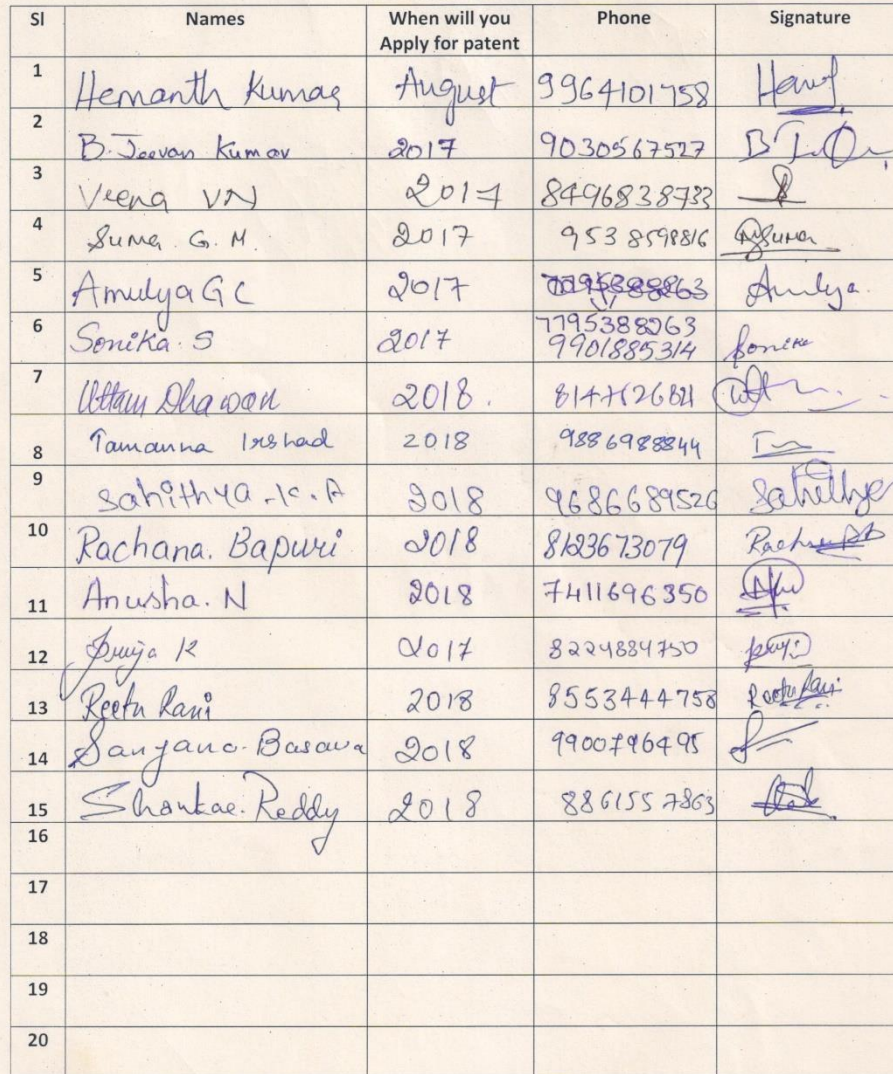 Sl Names When will you Apply for patent Phone Signature
1 Hemanth Kumar August 9964101758
2 B. Jeevan Kumar 2017 9030567527
3 Veena VN 2017 8496838733
4 Suma G. M. 2017 9538598816 Suma
5 Amulya G C 2017 Amulya
7795388263
6 Sonika. S 2017 9901885314 Sonika
7 Uttam Dhawan 2018.
8 Tamanna Irshad 2018 9886988844
9 Sahithya. K. A 2018 9686689526 Sahithya
10 Rachana. Bapuri 2018 8123673079
11 Anusha. N 2018 7411696350
12 K 2017 8224884750
13 Reetu Rani 2018 8553444758 Reetu Rani
14 Basava 2018 9900796495
15 Shankar. Reddy 2018 8861557863
16
17
18
19
20